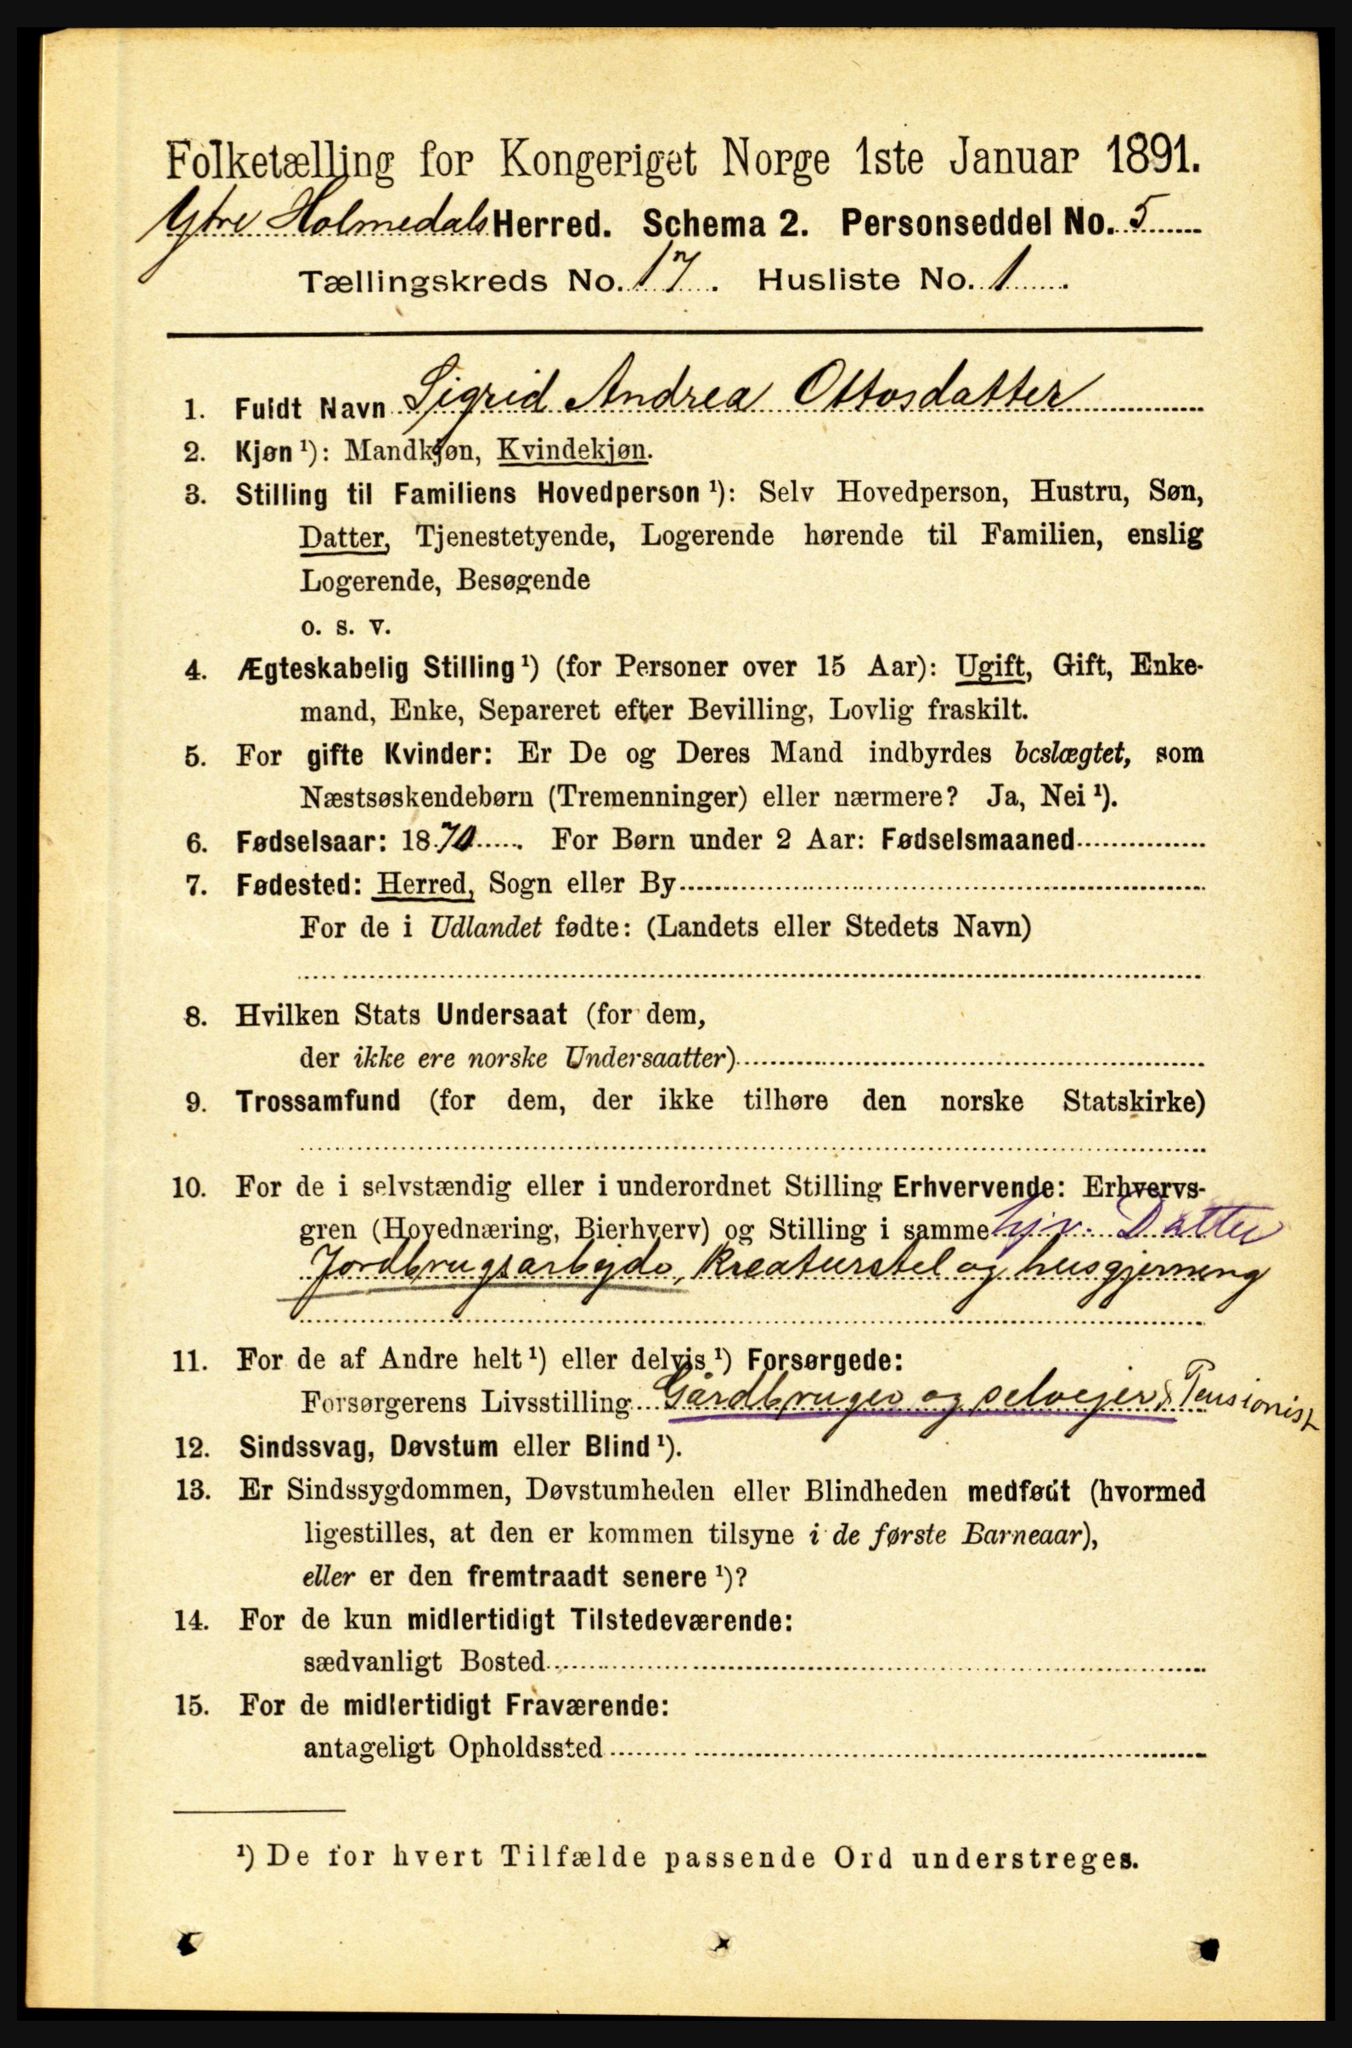 Folketælling for Kongeriget Norge 1ste Januar 1891.
Ytre Holmedals Herred. Schema 2. Personseddel No. 5
Tællingskreds No. 17. Husliste No. 1.
1. Fuldt Navn Sigrid Andrea Ottosdatter
2. Kjøn ¹): Mandkjøn, Kvindekjøn.
3. Stilling til Familiens Hovedperson ¹): Selv Hovedperson, Hustru, Søn,
Datter, Tjenestetyende, Logerende hørende til Familien, enslig
Logerende, Besøgende
o. s. v.
4. Ægteskabelig Stilling ¹) (for Personer over 15 Aar): Ugift, Gift, Enke-
mand, Enke, Separeret efter Bevilling, Lovlig fraskilt.
5. For gifte Kvinder: Er De og Deres Mand indbyrdes beslægtet, som
Næstsøskendebørn (Tremenninger) eller nærmere? Ja, Nei ¹).
6. Fødselsaar: 1870. For Børn under 2 Aar: Fødselsmaaned
7. Fødested: Herred, Sogn eller By
For de i Udlandet fødte: (Landets eller Stedets Navn)
8. Hvilken Stats Undersaat (for dem,
der ikke ere norske Undersaatter)
9. Trossamfund (for dem, der ikke tilhøre den norske Statskirke)
10. For de i selvstændig eller i underordnet Stilling Erhvervende: Erhvervs-
gren (Hovednæring, Bierhverv) og Stilling i samme hjv. Datter
Jordbrugsarbejde, kreaturstel og husgjerning
11. For de af Andre helt ¹) eller delvis ¹) Forsørgede:
Forsørgerens Livsstilling Gårdbruger og selvejer & Pensionist
12. Sindssvag, Døvstum eller Blind ¹).
13. Er Sindssygdommen, Døvstumheden eller Blindheden medfødt (hvormed
ligestilles, at den er kommen tilsyne i de første Barneaar),
eller er den fremtraadt senere ¹)?
14. For de kun midlertidigt Tilstedeværende:
sædvanligt Bosted
15. For de midlertidigt Fraværende:
antageligt Opholdssted
¹) De for hvert Tilfælde passende Ord understreges.